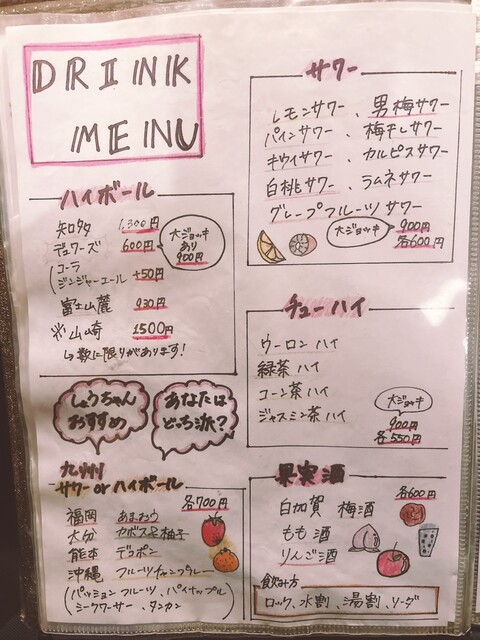 DRINK
MENU
ハイボール
知多 1,300円
デュワーズ 600円
大ジョッキ
あり
900円
コーラ
ジンジャーエール +50円
富士山麓 930円
※山崎 1500円
↳数に限りがあります!
しょうちゃん
おすすめ
あなたは
どっち派?
九州
サワー or ハイボール
各700円
福岡 あまおう
大分 カボス&柚子
熊本 デコポン
沖縄 フルーツチャンプルー
(パッションフルーツ、パイナップル
シークワーサー、タンカン)
サワー
レモンサワー、男梅サワー
パインサワー、梅干しサワー
キウイサワー、カルピスサワー
白桃サワー、ラムネサワー
グレープフルーツサワー
大ジョッキ 900円
各600円
チューハイ
ウーロンハイ
緑茶ハイ
コーン茶ハイ
ジャスミン茶ハイ
大ジョッキ
900円
各550円
果実酒
各600円
白加賀 梅酒
もも酒
りんご酒
飲み方
ロック、水割、湯割、ソーダ